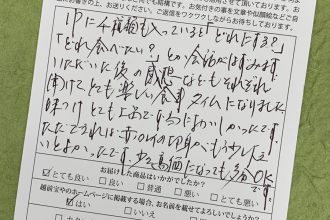 お送りください。ご返信をワクワクしながらお待ちしております。
に千種類も入っていると「どれにする?」
「どれ食べたい?」とか会話がはずみます。
いただいた後の感想などもそれぞれ
とても楽しい食事タイムになりました。
味つけ とても上品で おいしかったです。
ただできれば、赤 の切身がもう少し
とよかったです。少々高価になっても OK
です。
お届けした商品はいかがでしたか?
☑とても良い □良い □普通 □悪い □とても悪い
越前宝やのホームページに掲載する場合、お名前を載せてよろしいでしょうか?
☑はい □いいえ